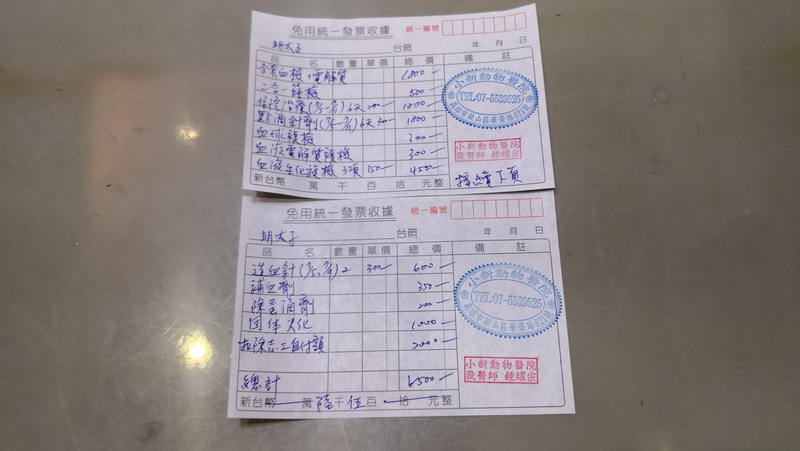 免用統一發票收據 統一編號
明太子 台照 年 月 日
品 名 數量 單價 總價 備註
全套血檢+電解質 1800
二合一篩檢 500
住院治療 6天 200 1200
點滴針劑 6天 300 1800
血球複檢 300
血液電解質複檢 300
血液生化複檢 3項 150 450
新台幣 萬 千 百 拾 元整 接續下頁
小新動物醫院
TEL:07-5539525
小新動物醫院
獸醫師 鍾耀宗
免用統一發票收據 統一編號
明太子 台照 年 月 日
品 名 數量 單價 總價 備註
造血針 2 300 600
補血劑 350
除蚤滴劑 200
團体火化 1000
扣除志工自付額 2000
總計 6500
新台幣 萬 陸千 伍百 拾 元整
小新動物醫院
TEL:07-5539525
小新動物醫院
獸醫師 鍾耀宗